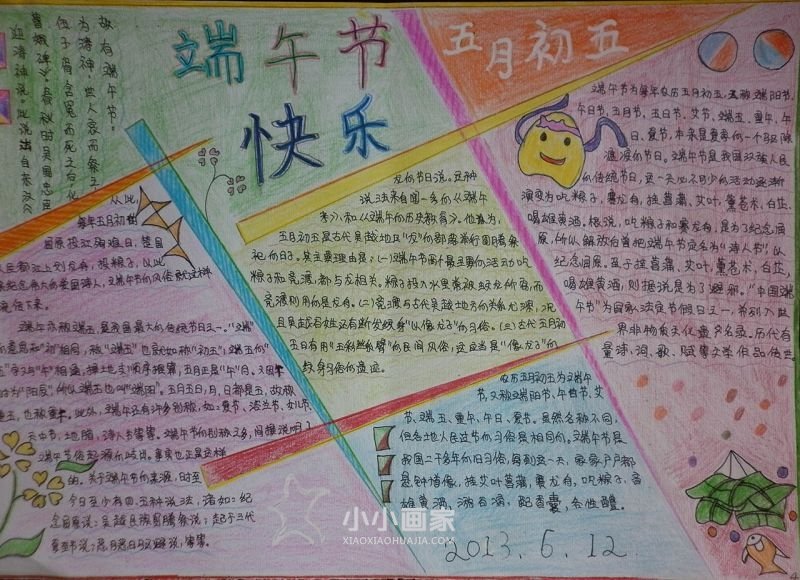 端午节
快乐
五月初五
故有端午节。
为涛神，世人哀而祭之，
伍子胥含冤而死之后化
曹娥碑》。春秋时吴国忠臣
迎涛神说。此说出自东汉《
从此，
每年五月初五
屈原投江殉难日，楚国
人民都江上划龙舟，投粽子，以此
来纪念伟大的爱国诗人，端午节的风俗就这样
流传下来。
端午亦称端五，
五月正是"午"月。
时为"阳辰"，所以端五也叫"端阳"。五月五日，月、日都是五，故称
重五，也称重午。此外，端午还有许多别称，如：夏节、浴兰节、女儿节、
天中节、地腊、诗人节等等。端午节的别称之多，间接说明了
端午节俗起源的歧异。事实也正是这样
的。关于端午节的来源，时至
今日至少有四、五种说法，诸如：纪
念屈原说；吴越民族图腾祭说；起于三代
夏至节说；恶月恶日驱避说，等等。
龙的节日说。这种
说法来自闻一多的《端午
考》和《端午的历史教育》。他认为，
五月初五是古代吴越地区"龙"的部落举行图腾祭
祀的日子。其主要理由是：(一)端午节两个最主要的活动吃
粽子和竞渡，都与龙相关。粽子投入水里常被蛟龙所窃，而
竞渡则用的是龙舟。(二)竞渡与古代吴越地方的关系尤深，况
且吴越百姓还有断发纹身"以像龙子"的习俗。(三)古代五月初
五日有用"五彩丝系臂"的民间风俗，这应当是"像龙子"的
纹身习俗的遗迹。
端午节为每年农历五月初五，又称端阳节、
午日节、五月节、五日节、艾节、端五、重午、午
日、夏节，本来是夏季的一个驱除
瘟疫的节日。端午节是我国汉族人民
的传统节日，这一天必不可少的活动逐渐
演变为吃粽子，赛龙舟，挂菖蒲、艾叶，薰苍术、白芷，
喝雄黄酒。据说，吃粽子和赛龙舟，是为了纪念屈
原，所以解放后曾把端午节定名为"诗人节"，以
纪念屈原。至于挂菖蒲、艾叶，薰苍术、白芷，
喝雄黄酒，则据说是为了避邪。"中国端
午节"为国家法定节假日之一，并列入世
界非物质文化遗产名录。历代有
量诗、词、歌、赋等文学作品传世。
农历五月初五为端午
节，又称端阳节、午日节、艾
节、端五、重午、午日、夏节。虽然名称不同，
但各地人民过节的习俗是相同的。端午节是
我国二千多年的旧习俗，每到这一天，家家户户都
悬钟馗像，挂艾叶菖蒲，赛龙舟，吃粽子，饮
雄黄酒，游百病，佩香囊，备牲醴。
2013.6.12
小小画家
XIAOXIAOHUAJIA.COM